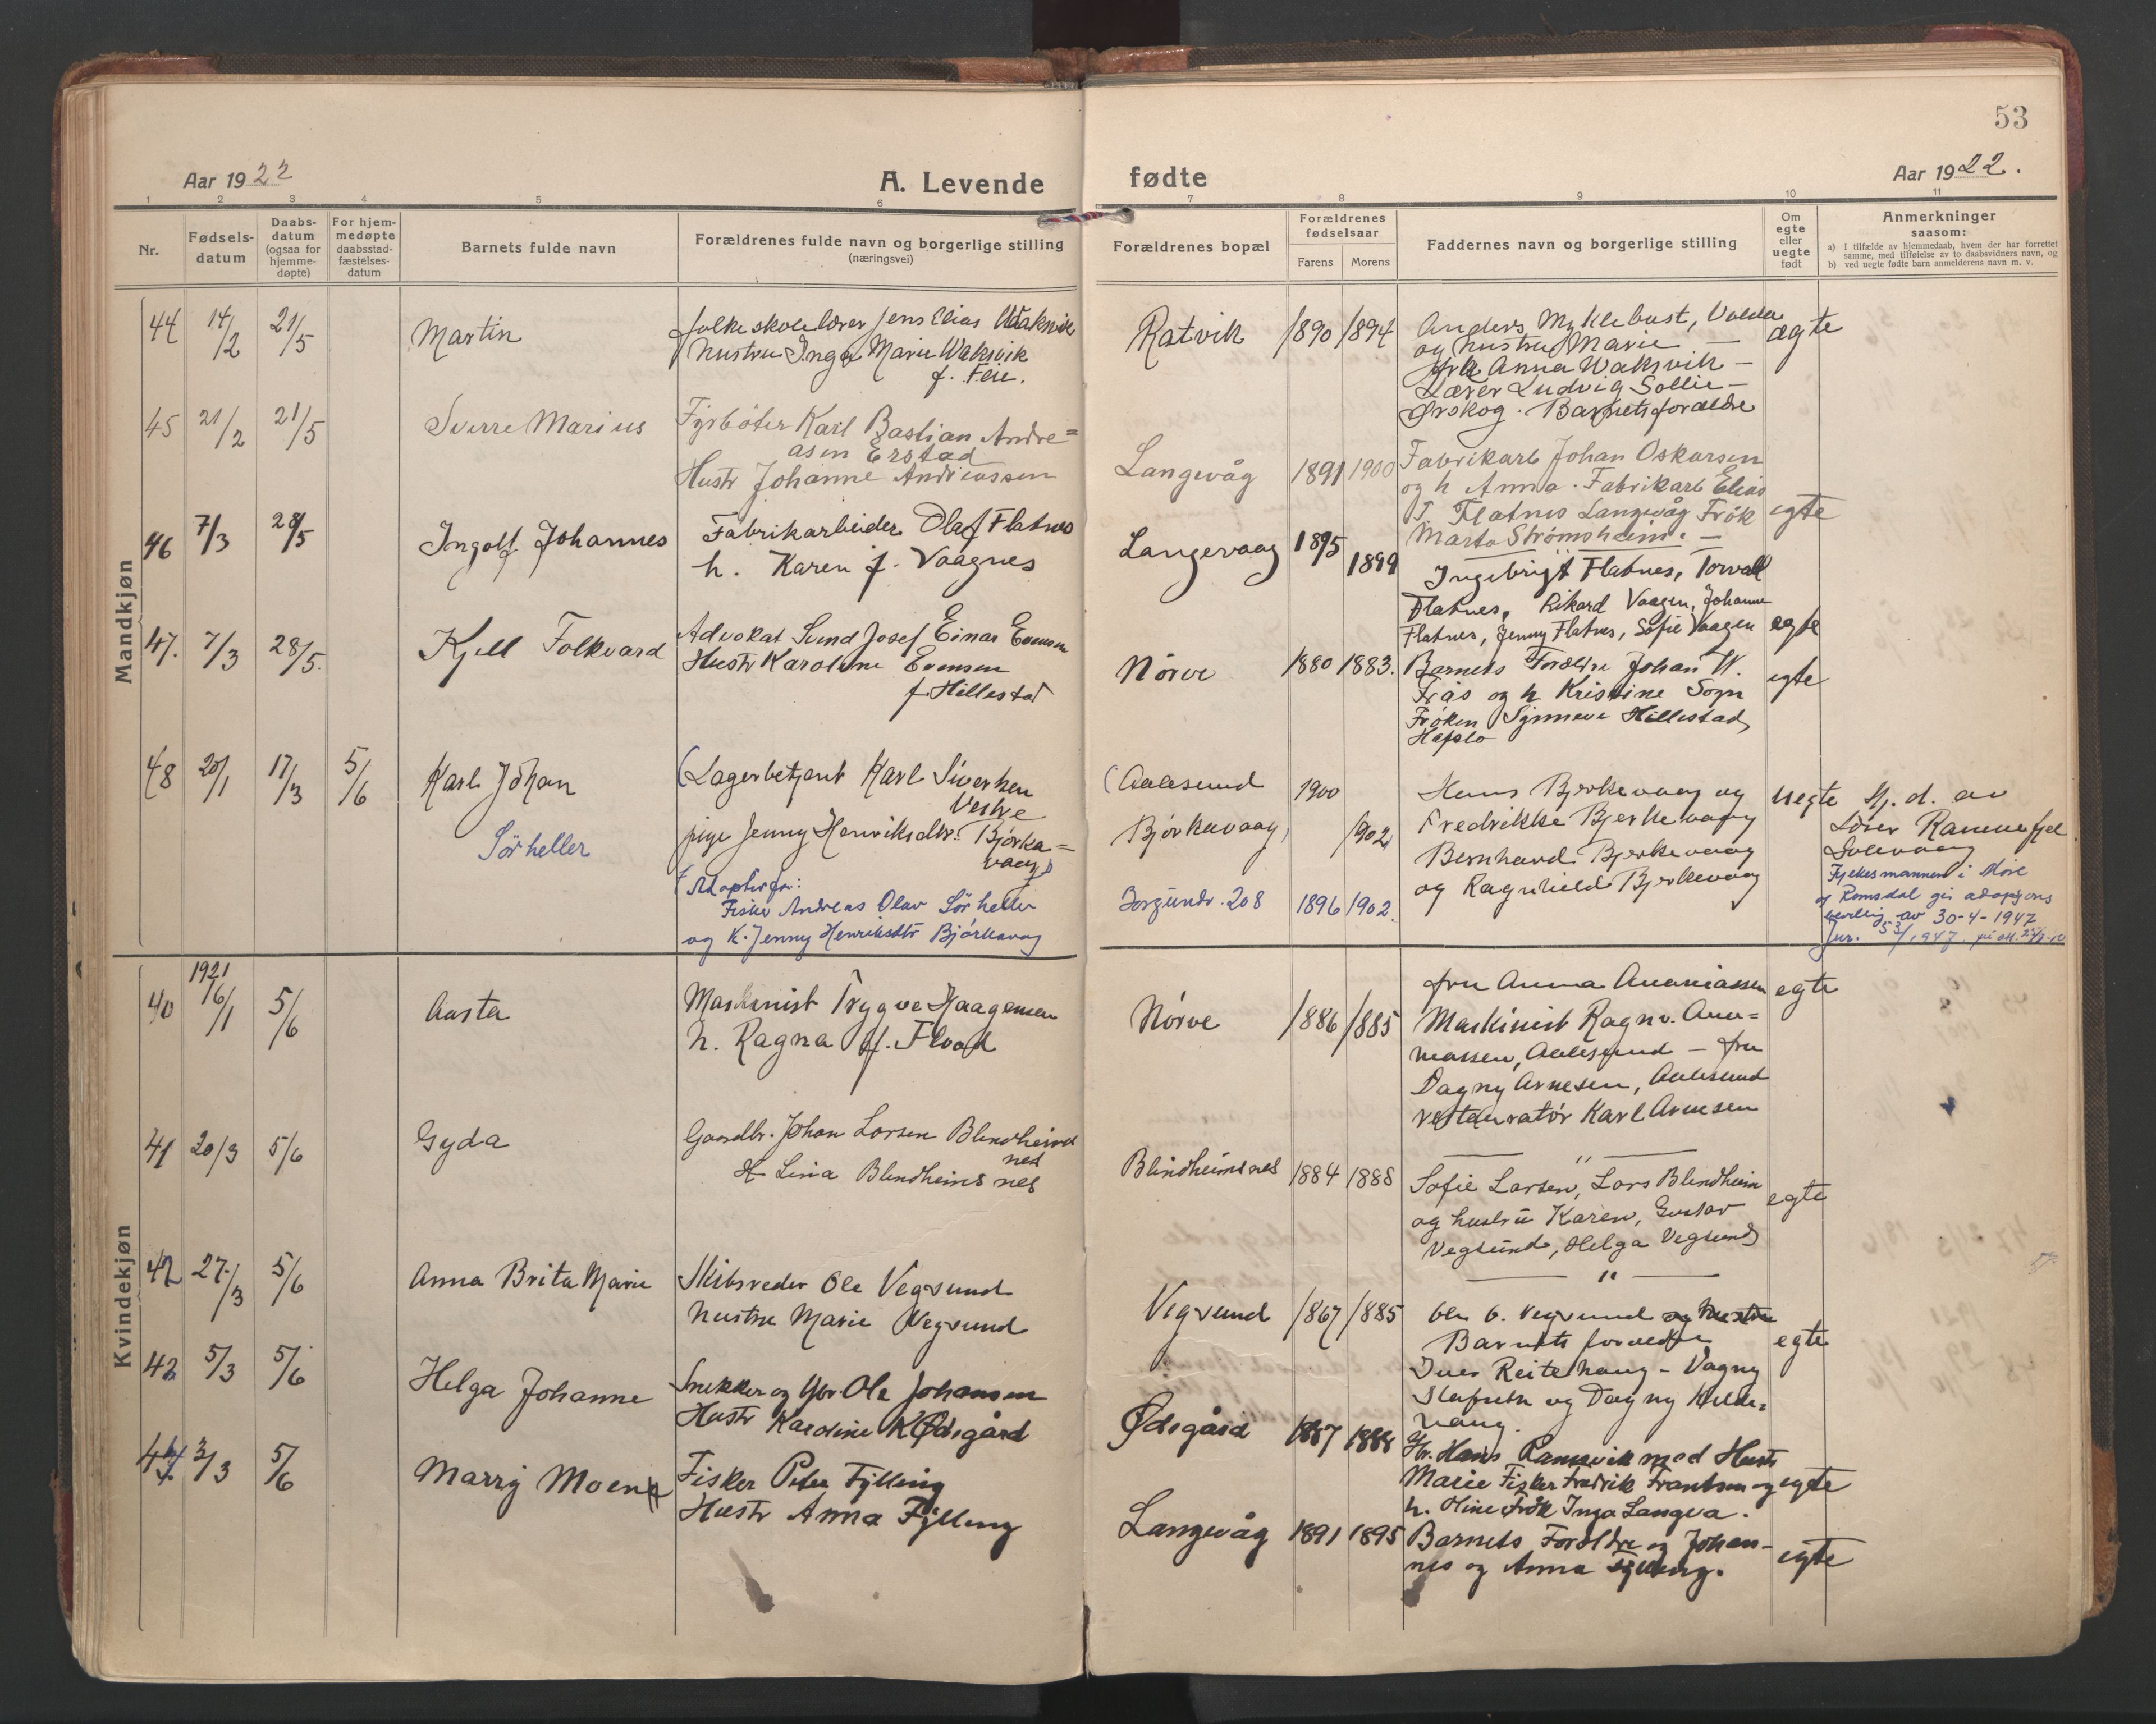 53
Aar 1922
A. Levende
fødte
Aar 1922.
1 2 3 4 5 6 7 8 9 10 11
Nr.
Fødsels-
datum
Daabs-
datum
(ogsaa for
hjemme-
døpte)
For hjem-
medøpte
daabsstad-
fæstelses-
datum
Barnets fulde navn
Forældrenes fulde navn og borgerlige stilling
(næringsvei)
Forældrenes bopæl
Forældrenes
fødselsaar
Farens Morens
Faddernes navn og borgerlige stilling
Om
egte
eller
uegte
født
Anmerkninger
saasom:
a) I tilfælde av hjemmedaab, hvem der har forrettet
samme, med tilføielse av to daabsvidners navn, og
b) ved uegte fødte barn anmelderens navn m. v.
Mandkjøn
44 14/2 21/5 Martin
folkeskolelærer Jens Elias Waksvik
hustru Inga Marie Waksvik
f. Feie.
Ratvik 1890 1894
Anders Myklebust, Volda
og hustru Marie —
frk Anna Waksvik —
Lærer Ludvig Sollie —
Ørskog. Barnets forældre
ægte
45 21/2 21/5 Sverre Marius
Fyrbøter Karl Bastian Andre=
asen Erstad
Hustr Johanne Andreassen
Langevåg 1891 1900
Fabrikarb Johan Oskarsen
og h Anna. Fabrikarb Elias
T. Flatnes Langevåg Frøk
Marta Strømsheim. —
egte
46 7/3 28/5 Ingolf Johannes
Fabrikarbeider Olaf Flatnes
h. Karen f. Vaagnes
Langevaag 1895 1899
Ingebrigt Flatnes, Torvall
Flatnes, Rikard Vaagen, Johanne
Flatnes, Jenny Flatnes, Sofie Vaagen
egte
47. 7/3 28/5. Kjell Folkvard
Advokat Svend Josef Einar Evensen
Hustr Karoline Evensen
f. Hillestad
Nørve 1880 1883.
Barnets Foreldre Johan W.
Fiås og h Kristine Sogn
Frøken Synneve Hillestad,
Hafslo
egte
48 20/1 17/3 5/6 Karl Johan
Sørheller
(Lagerbetjent Karl Sivertsen
Vestre
pige Jenny Henriksdtr. Bjørka=
vaag)
(Adoptivfor.:
Fisker Andreas Olav Sørheller
og K. Jenny Henriksdtr Bjørkavag
(Aalesund 1900
Bjørkavaag, 1902
Borgundv. 208 1896 1902.
Hans Bjerkevaag og
Fredrikke Bjerkevaag
Bernhard Bjerkevaag
og Ragnhild Bjerkevaag
uegte
Hj. d. av
Lærer Rammefjel
Solevaag
Fylkesmannen i Møre
og Romsdal gir adopsjons
bevilling av 30-4-1947
Jnr. 53/1947
Kvindekjøn
40 1921 16/1 5/6 Aasta
Maskinist Trygve Haagensen
h. Ragna f. Flood
Nørve 1886 1885
fru Anna Ananiassen
Maskinist Ragnv. Ana=
niassen, Aalesund — fru
Dagny Arnesen, Aalesund
restauratør Karl Arnesen
— " —
egte
41 20/3 5/6 Gyda
Gaardbr. Johan Larsen Blindheims
nes
H Lina Blindheimsnes
Blindheimsnes 1884 1888
Sofie Larsen, Lars Blindheim
og hustru Karen, Gustav
Vegsund, Helga Vegsund
— " —
egte
42 27/3 5/6 Anna Brita Marie
Skibsreder Ole Vegsund
hustru Marie Vegsund
Vegsund 1867 1885
Ole O. Vegsund og hustru
Barnets forældre
Ines Reitehaug — Vagny
Slafseth og Dagny Kelde=
haug.
egte
43 5/3 5/6 Helga Johanne
Snekker og Gbr Ole Johansen
Hustr Karoline K Ødegård
Ødegård 1887 1888
Hr. Hans Ramsvik med Hustr
Marie Fisker Fredrik Frantsen og
h. Oline Frøk Inga Langva.
egte
44. 3/3 5/6 Marry Moen
Fisker Peter Fylling
Hustr Anna Fylling
Langevåg 1891 1895
Barnets Foreldre og Johan-
nes og Anna Fylling.
egte